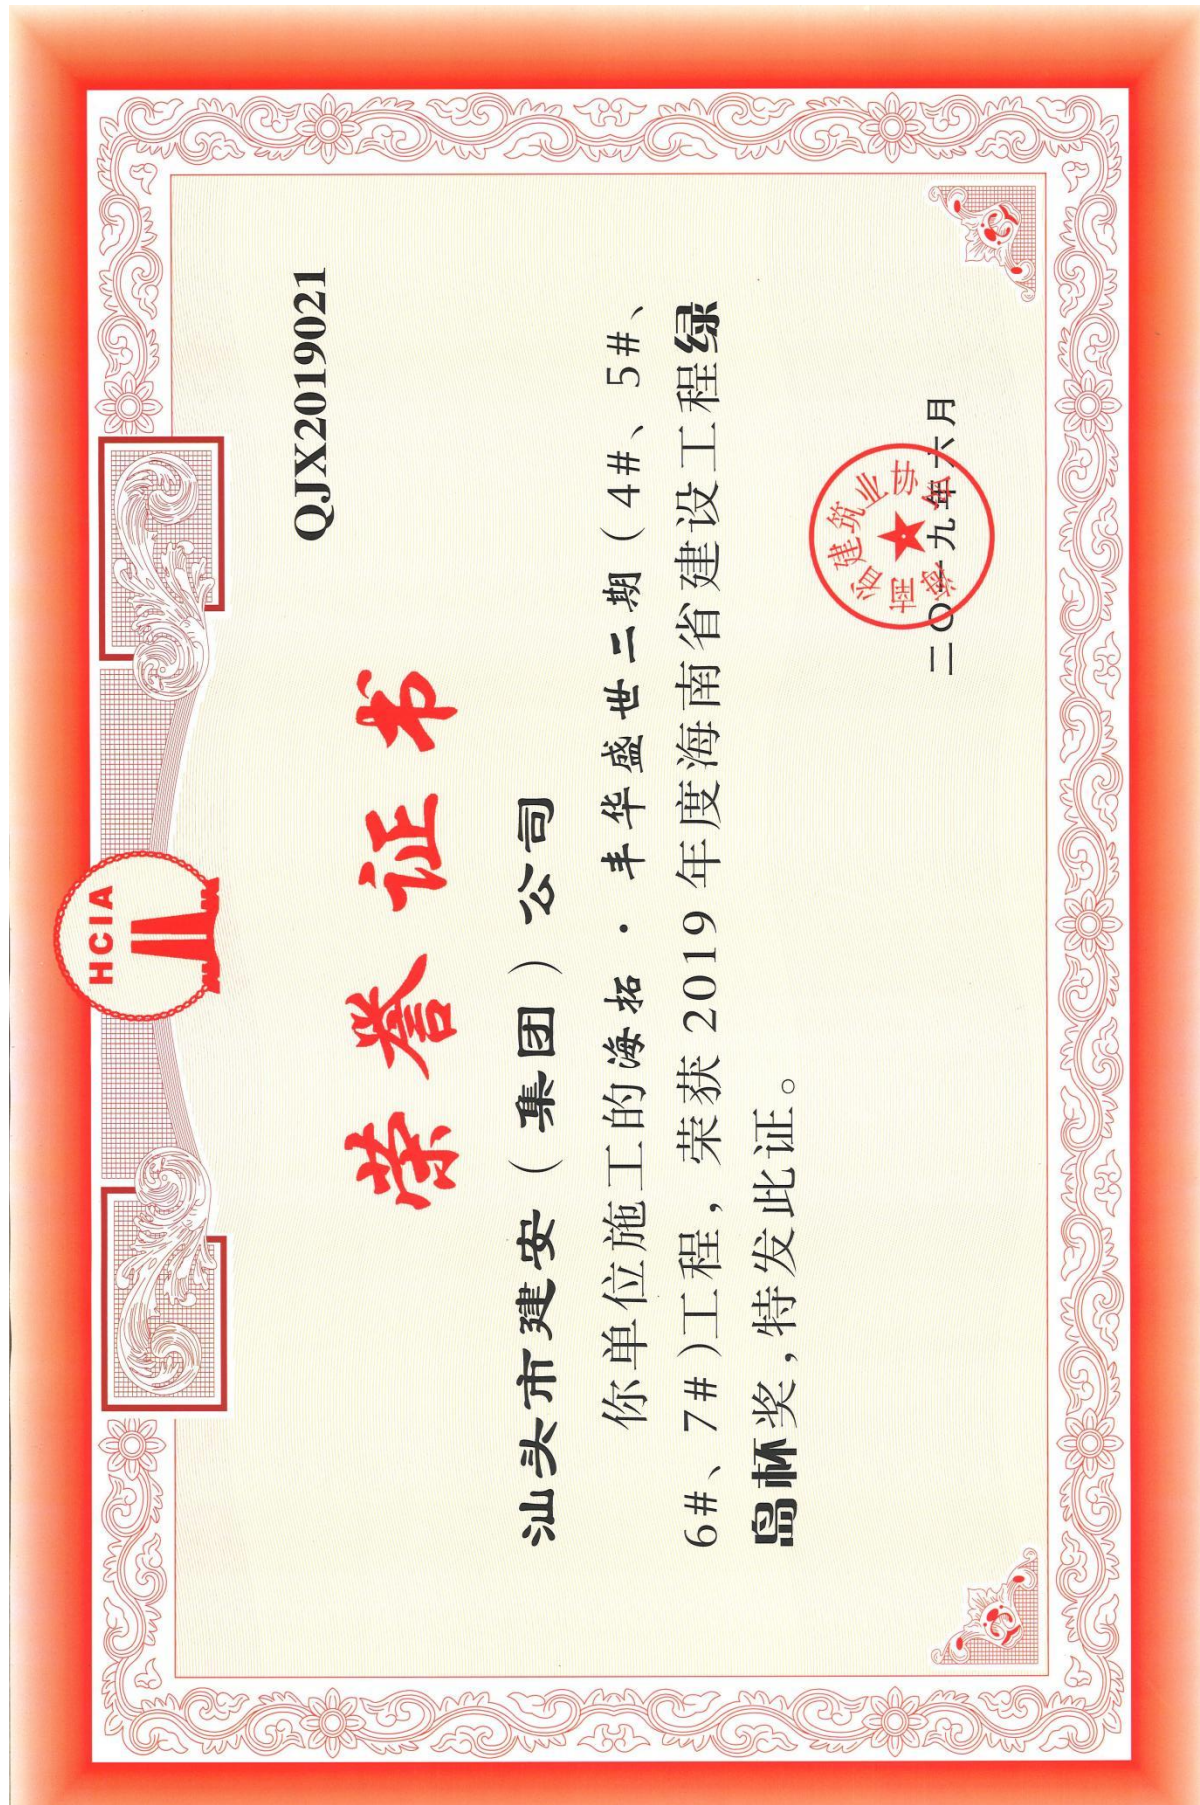 HCIA
QJX2019021
荣誉证书
汕头市建安（集团）公司
你单位施工的海拓·丰华盛世二期（4#、5#、
6#、7#）工程，荣获2019年度海南省建设工程绿
岛杯奖，特发此证。
海南省建筑业协会
二〇一九年六月